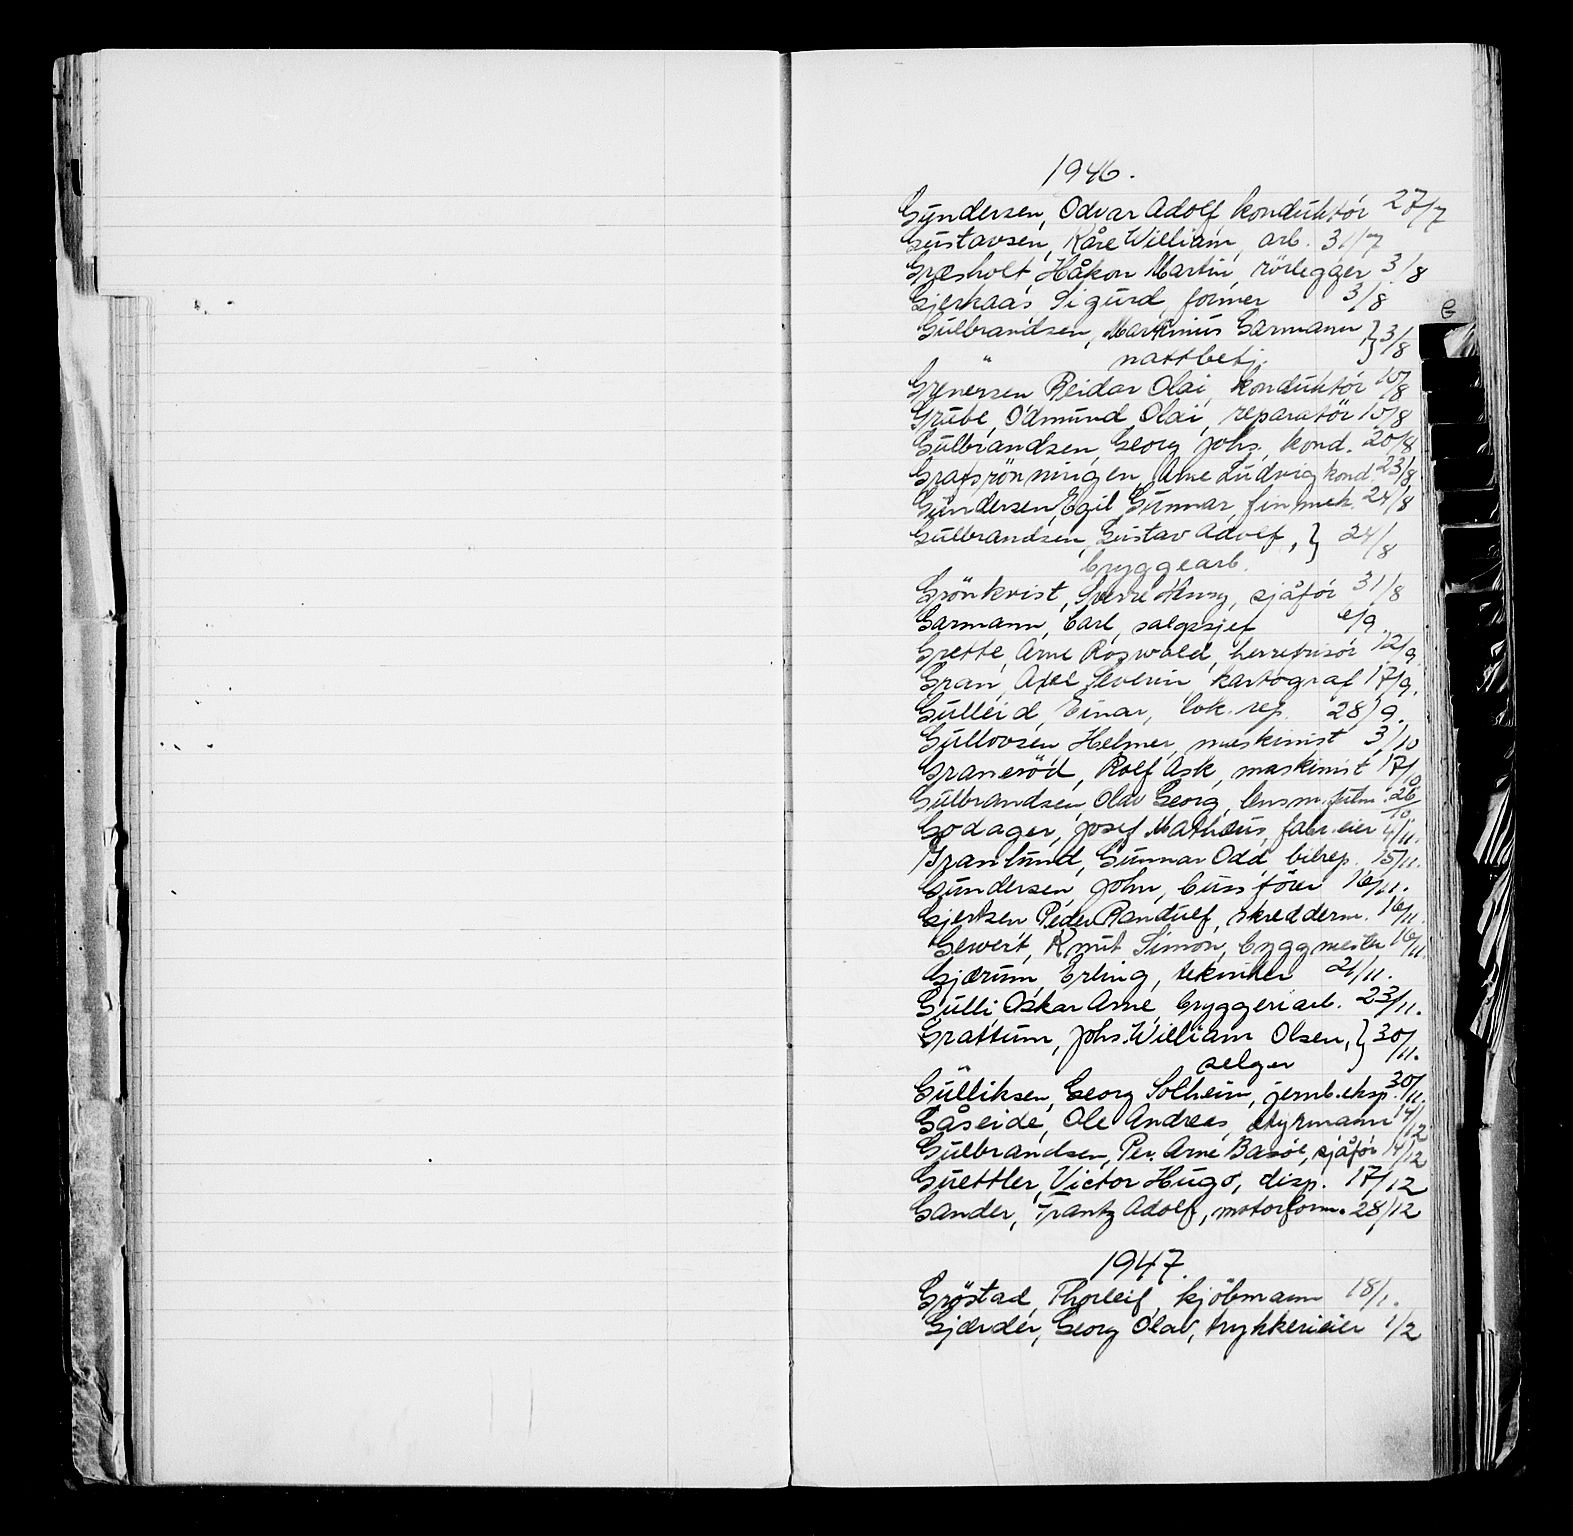 1946.
Gundersen, Odvar Adolf, konduktör 27/7
Gustavsen, Kåre William, arb. 31/7
Græsholt, Håkon Martin, rörlegger 3/8
Gjerkaas Sigurd, former 3/8
Gulbrandsen, Martinius Garmann, } 3/8
" nattbetj.
Grenersen Reidar Olai, konduktör 10/8
Grube, Odmund Olai, reparatör 10/8
Gulbrandsen, Georg Johs., kond. 20/8
Grafsrönningen, Arne Ludvig kond. 23/8
Gundersen, Egil Gunnar, finmek. 24/8
Gulbrandsen, Gustav Adolf, } 24/8
bryggearb.
Grönkvist, Sverre Henry, sjåför 31/8
Garmann, Carl, salgssjef /9.
Grette, Arne Rogwald, herrefrisör 12/9.
Gran, Axel Severin kartograf 17/9.
Gulleid, Einar, lok. rep. 28/9.
Gullovsen Helmer, maskinist 3/10
Graneröd, Rolf Ask, maskinist 17/10
Gulbrandsen, Olav Georg, lensm. fulm. 26/10
Godager, Josef Mathæus, fabr. eier 4/11.
Granlund, Gunnar Odd, bilrep. 15/11.
Gundersen, John, bussförer 16/11.
Gjertsen Peder Randulf, skredderm. 16/11.
Gewert, Knut Simon, byggmester 16/11
Gjærum, Erling, tekniker 21/11.
Gulli, Oskar Arne, bryggeriarb. 23/11.
Grattum, Johs. William Olsen, } 30/11.
selger
Gulliksen, Georg Solheim, jernb.eksp. 30/11.
Gåseide, Ole Andreas, styrmann 14/12
Gulbrandsen, Per. Arne Basöe, sjåför 14/12
Guettler, Victor Hugo, disp. 17/12
Gander, Frantz Adolf, motorform. 28/12
1947.
Gröstad, Thorleif, kjöbmann 18/1.
Gjærder, Georg Olav, trykkerieier 1/2
G